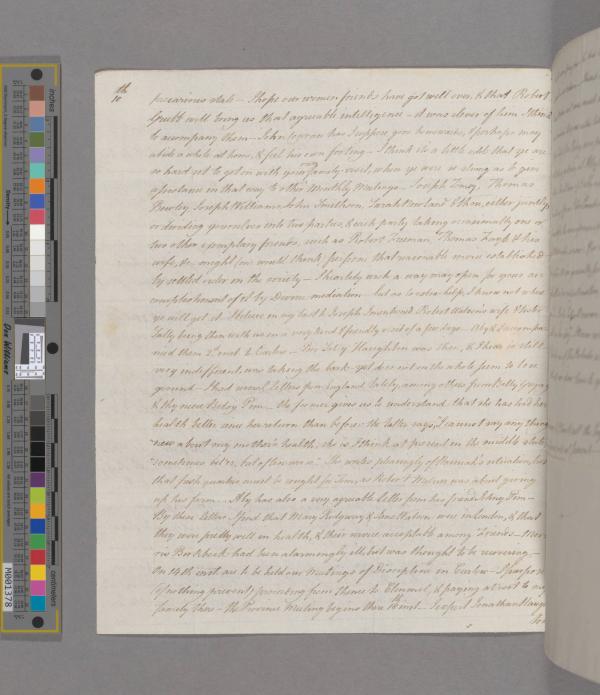 th
10
precarious state - I hope our women friends have got well over, & that Robert
Grubb will bring us that agreeable intelligence - it was clever of him I think
to accompany them - John Cooran has I suppose gone homewards, & perhaps may
abide a while at home, & feel his own footing - I think it a little odd that ye are
so hard set to get on with your family visit, when ye were so strong as to give
assistance in that way to other Monthly Meetings - Joseph Thomas
Bewley, Joseph Williams, John Smithson, Sarah Newland & thou, either jointly
or dividing yourselves into two parties, & each party taking occasionally one or
two other exemplary friends, such as Robert Freeman, Thomas & his
wife, &c. ought (one would think) perform that reasonable more establish
by settled rules in the society - I heartily wish a way may open for your ac-
complishment of it by Divine mediation - but as to extra help, I know not where
ye will get it. I believe in my last Joseph Robert Watson's wife & sister
Sally being then with us on a very kind & friendly visit of a few days - Aby & Sally accompa
nied them to Carlow - Haughton was then, & I hear is still
very indifferent, was taking the bark - yet does not on the whole seem to lose
ground - I had several Letters from England lately, among others from Sally
& thy niece Betsy Pim - the former gives us to understand that she has had her
health better since her return than before: the latter says, "I cannot say any thing
new about my mother's health, she is I think at present in the middle state
sometimes better, but often worse." She writes pleasingly of Hannah's situation, but
that fresh quarters must be sought for them, as Robert was about giving
up his farm - Aby has also a very agreeable Letter from her friend Pim -
By these Letters I find that Mary Ridgway & Jane Watson were in London, & that
they were pretty well in health, & their service acceptable among Friends - Mor-
ris Birkbeck had been alarmingly ill, but was thought to be recovering -
On 14th inst. are to be held our Meetings of Discipline in Carlow - I purpose
(if nothing prevent) proceeding from thence to Clonmel, & paying a visit to my
family there - the Province Meeting begins there inst. - I expect Jonathan
inches
centimeters
Density
Don Williams
M001378